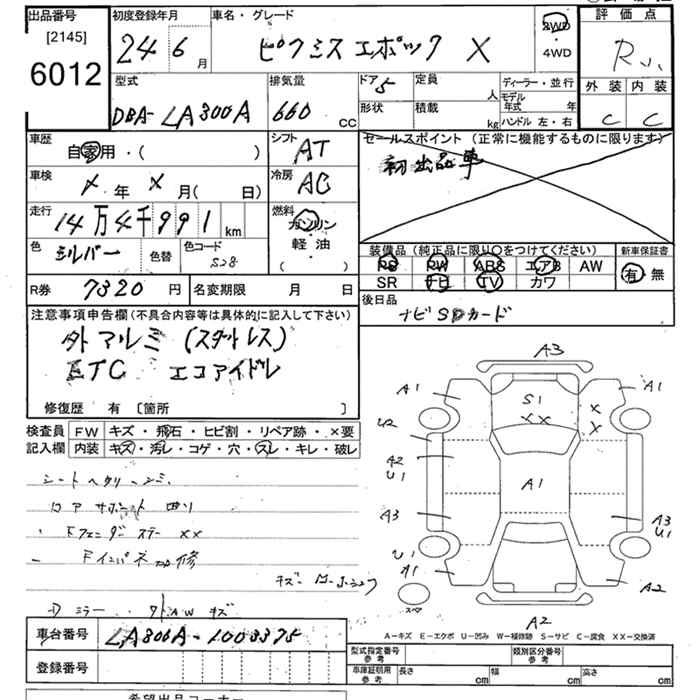 出品番号
[2145]
6012
初度登録年月
24 6 月
車名・グレード
ピクシスエポック X
2WD
・
4WD
評価点
R
外装 内装
C C
型式
DBA-LA300A
排気量
660 CC
ドア 5
形状
定員 人
積載 kg
ディーラー・並行
モデル年式 年
ハンドル 左・右
車歴
自家用・( )
シフト
AT
セールスポイント (正常に機能するものに限ります)
初出品車
車検
年 月( 日)
冷房
AC
走行
14万4千991 km
燃料
ガソリン
軽油
( )
色
シルバー
色替
色コード
S28
装備品 (純正品に限り〇をつけてください)
PS PW ABS エアB AW
SR ナビ TV カワ
新車保証書
有・無
R券 7320 円
名変期限 月 日
後日品
ナビSDカード
注意事項申告欄(不具合内容等は具体的に記入して下さい)
外アルミ (スタットレス)
ETC エコアイドル
修復歴 有 〔箇所 〕
検査員
記入欄
FW キズ・飛石・ヒビ割・リペア跡・×要
内装 キズ・汚レ・コゲ・穴・スレ・キレ・破レ
シートヘタリ
コアサポート 曲り
Fフェンダーステー ××
Fインパネ 補修
キズ
ミラー
キズ
車台番号 LA300A-1003375
登録番号
A3
A1 A1
S1
××
×
×
U2
A2
U1
A1
A3
A3
U1
U1
A1
A2
スペア
A2
A-キズ E-エクボ U-凹み W-補修跡 S-サビ C-腐食 XX-交換済
型式指定番号
参考
類別区分番号
参考
車庫証明用
参考
長さ cm
幅 cm
高さ cm
希望出品コーナー